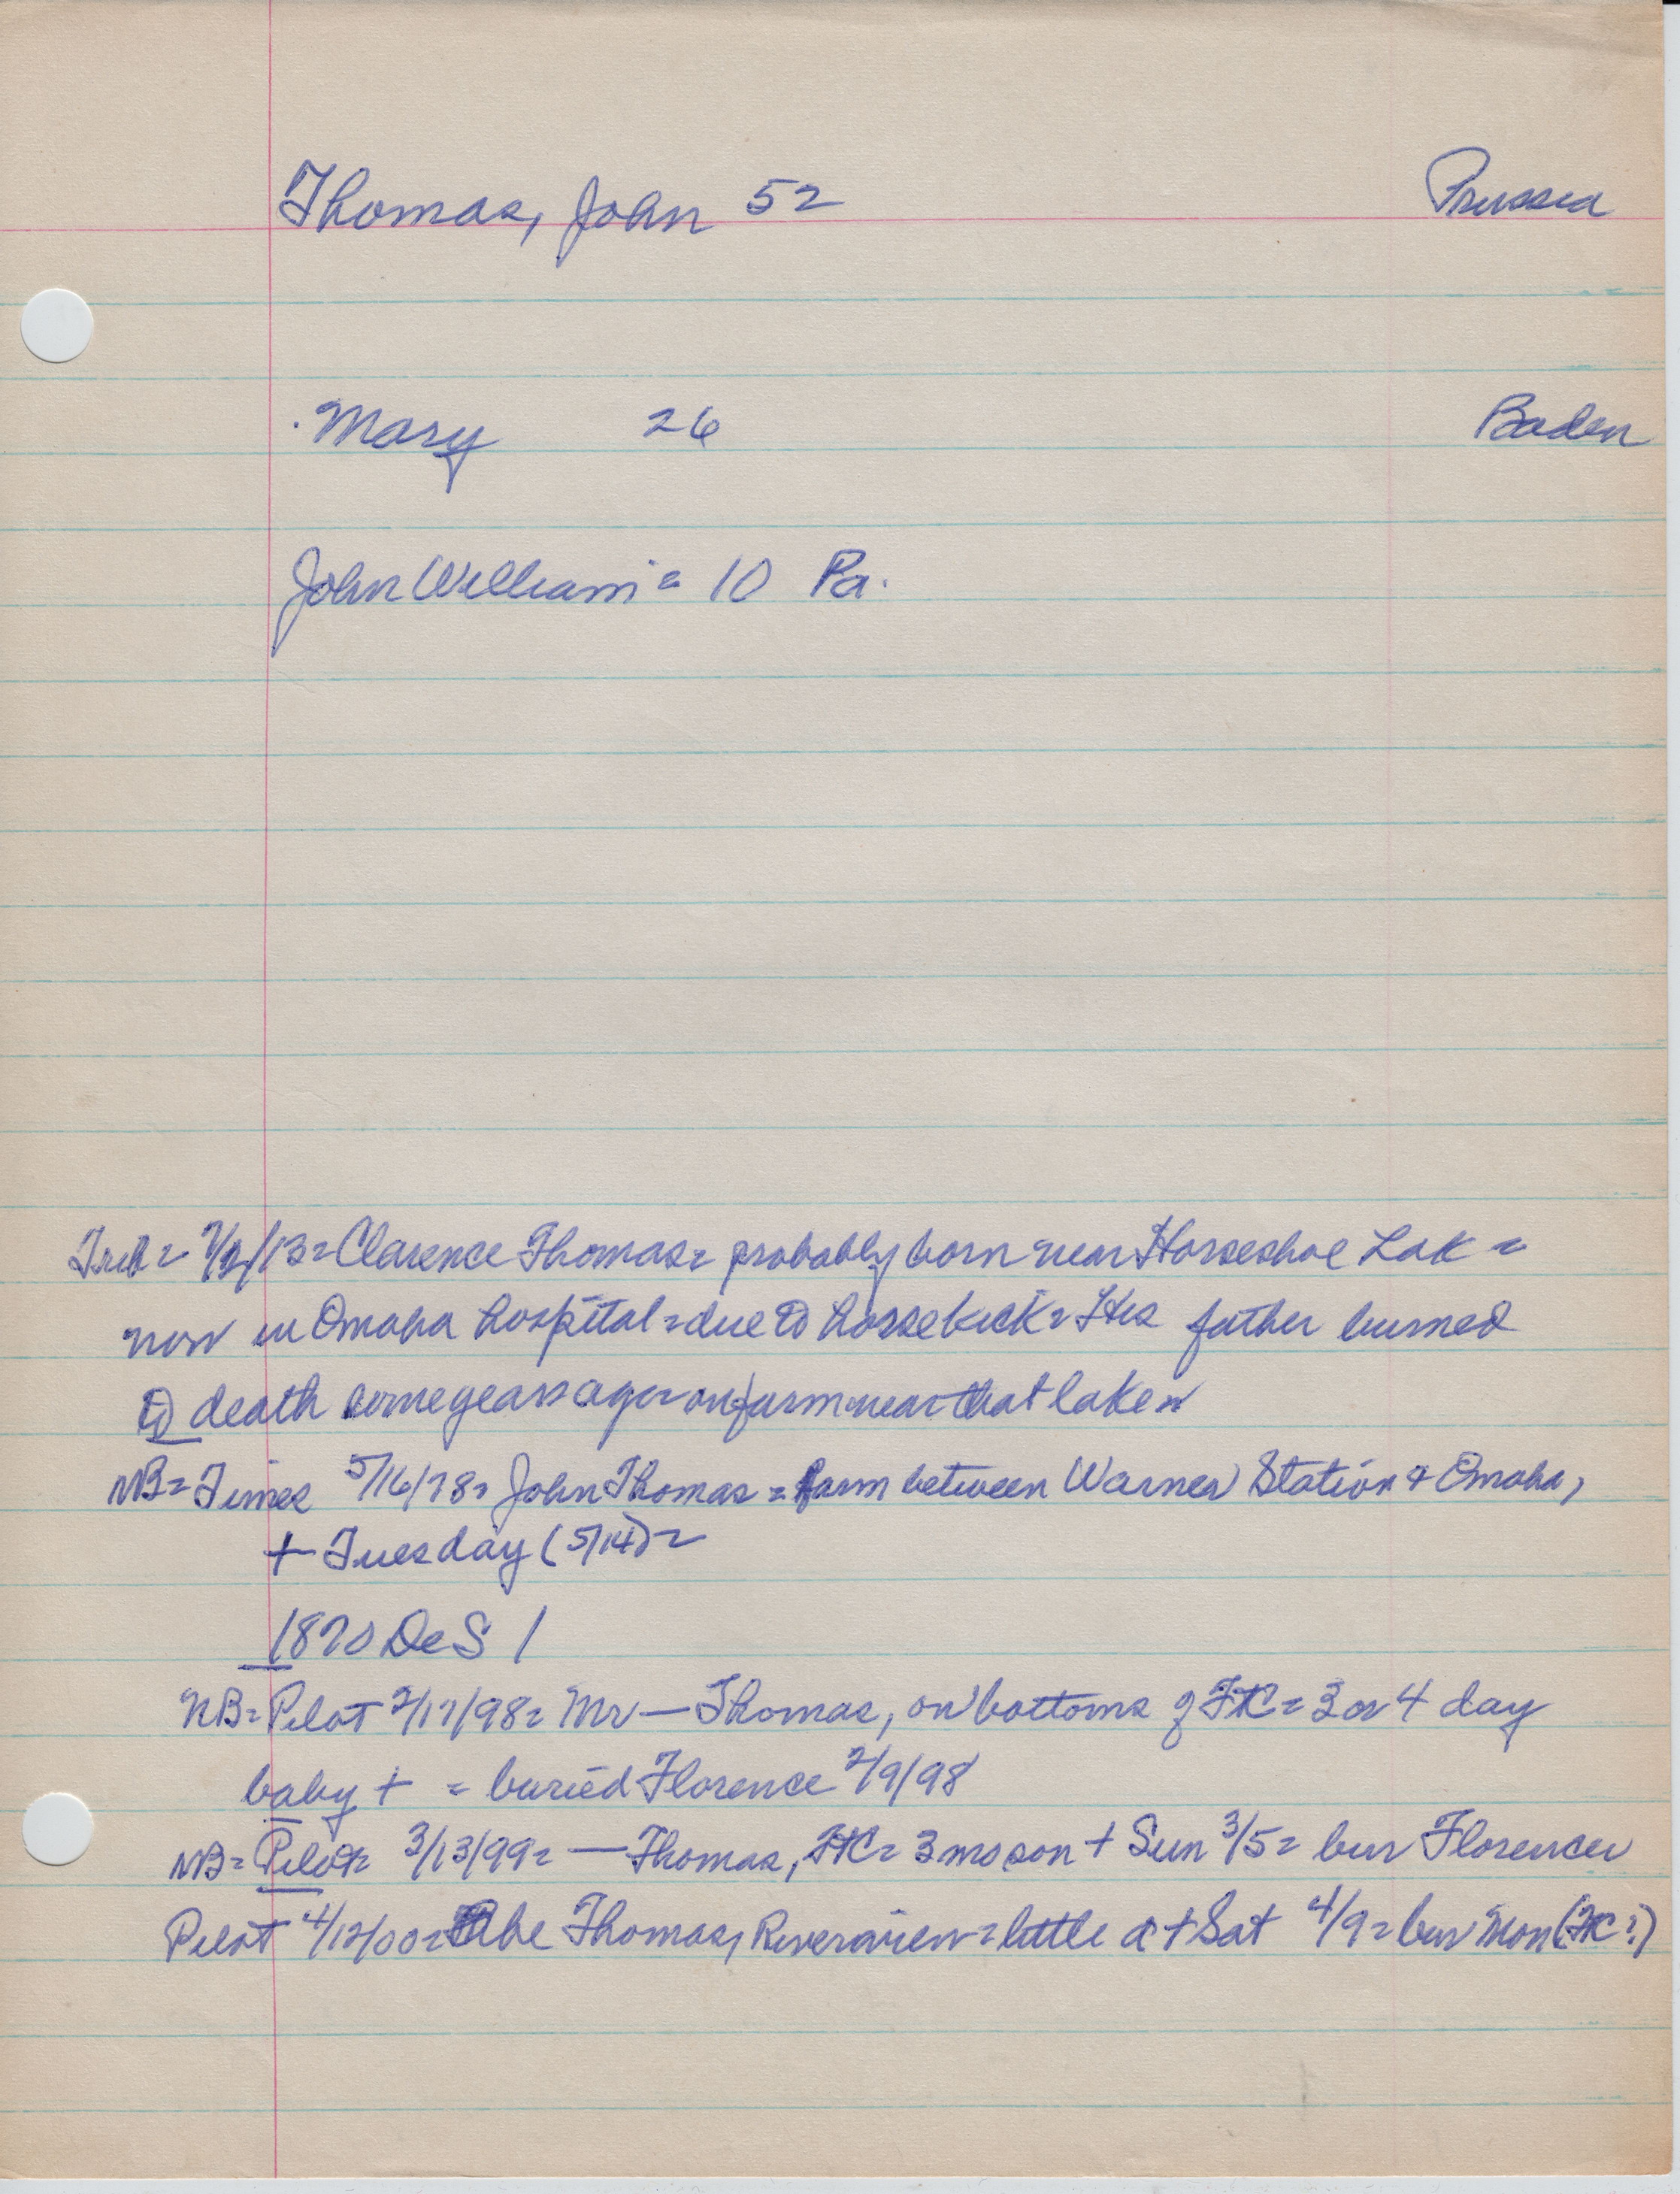 Thomas, John 52 Prussia
Mary 26 Baden
John William = 10 Pa.
Trib = 7/2/13 = Clarence Thomas = probably born near Horseshoe Lak =
now in Omaha hospital = due to horsekick = His father burned
to death some years ago = on farm near that lake =
NB = Times 5/16/78 = John Thomas = farm between Warner Station & Omaha,
+ Tuesday (5/14) =
1870 DeS 1
NB = Pilot 2/17/98 = Mr — Thomas, on bottoms of FtC = 3 or 4 day
baby + = buried Florence 2/9/98
NB = Pilot = 3/13/99 = — Thomas, FtC = 3 mo son + Sun 3/5 = bur Florence
Pilot 4/12/00 = Abe Thomas, Riverview = little d + Sat 4/9 = bur Mon (FtC?)